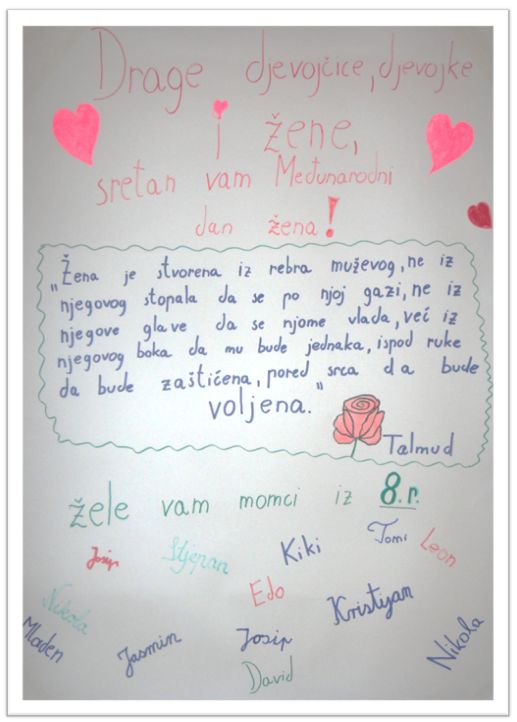 Drage djevojčice, djevojke
i žene,
sretan vam Međunarodni
dan žena!
„Žena je stvorena iz rebra muževog, ne iz
njegovog stopala da se po njoj gazi, ne iz
njegove glave da se njome vlada, već iz
njegovog boka da mu bude jednaka, ispod ruke
da bude zaštićena, pored srca da bude
voljena.“
Talmud
žele vam momci iz 8.r.
Josip Stjepan Kiki Tomi Leon
Nikola Edo Kristijan
Mladen Jasmin Josip Nikola
David